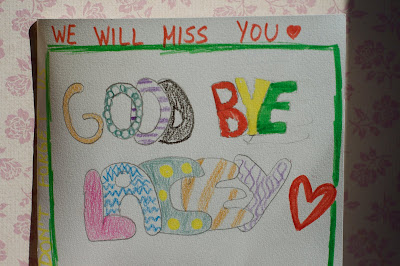 WE WILL MISS YOU
GOOD BYE
LACEY